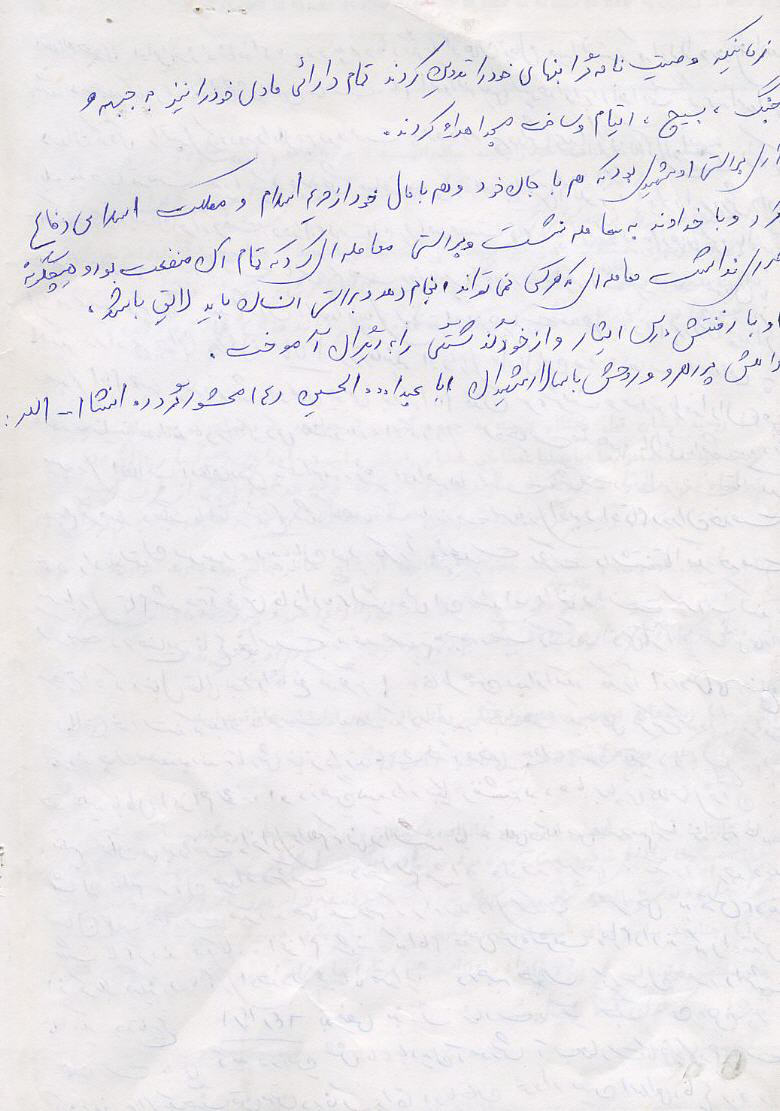 زمانیکه وصیت نامه گرانبهای خود را تدوین کردند تمام دارائی مادی خود را نیز به جبهه و
جنگ ، بسیج ، ایتام و ساخت مسجد اهداء کردند .
آری براستی او شهیدی بود که هم با جان خود و هم با مال خود از حریم اسلام و مملکت اسلامی دفاع
کرد و با خداوند به معامله نشست و براستی معامله ای کرد که تمام آن منفعت بود و هیچگونه
ضرری نداشت معامله ای که هر کس نمی تواند انجام دهد و براستی انسان باید لایق باشد ،
او با رفتنش درس ایثار و از خود گذشتگی را به دیگران آموخت .
راهش پر رهرو و روحش با سالار شهیدان ابا عبدا... الحسین (ع) محشور گردد . انشاا... الله :